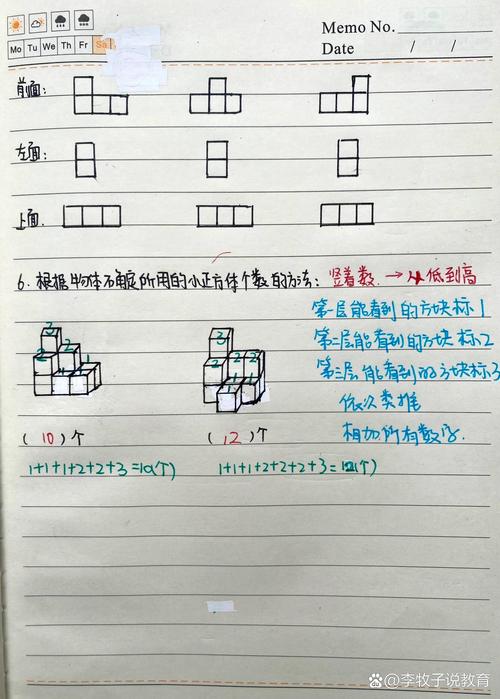 Memo No.
Mo Tu We Th Fr Sa
Date / /
前面:
左面:
上面:
6. 根据物体确定所用的小正方体个数的方法: 竖着数 → 从低到高
第一层能看到的方块标1
第二层能看到的方块标2
第三层能看到的方块标3
依次类推
相加所有数字.
3
2 2
1 1 1
3
2 2 2
1 1 1
(10)个 (12)个
1+1+1+2+2+3=10(个) 1+1+1+2+2+2+3=12(个)
百家号@李牧子说教育